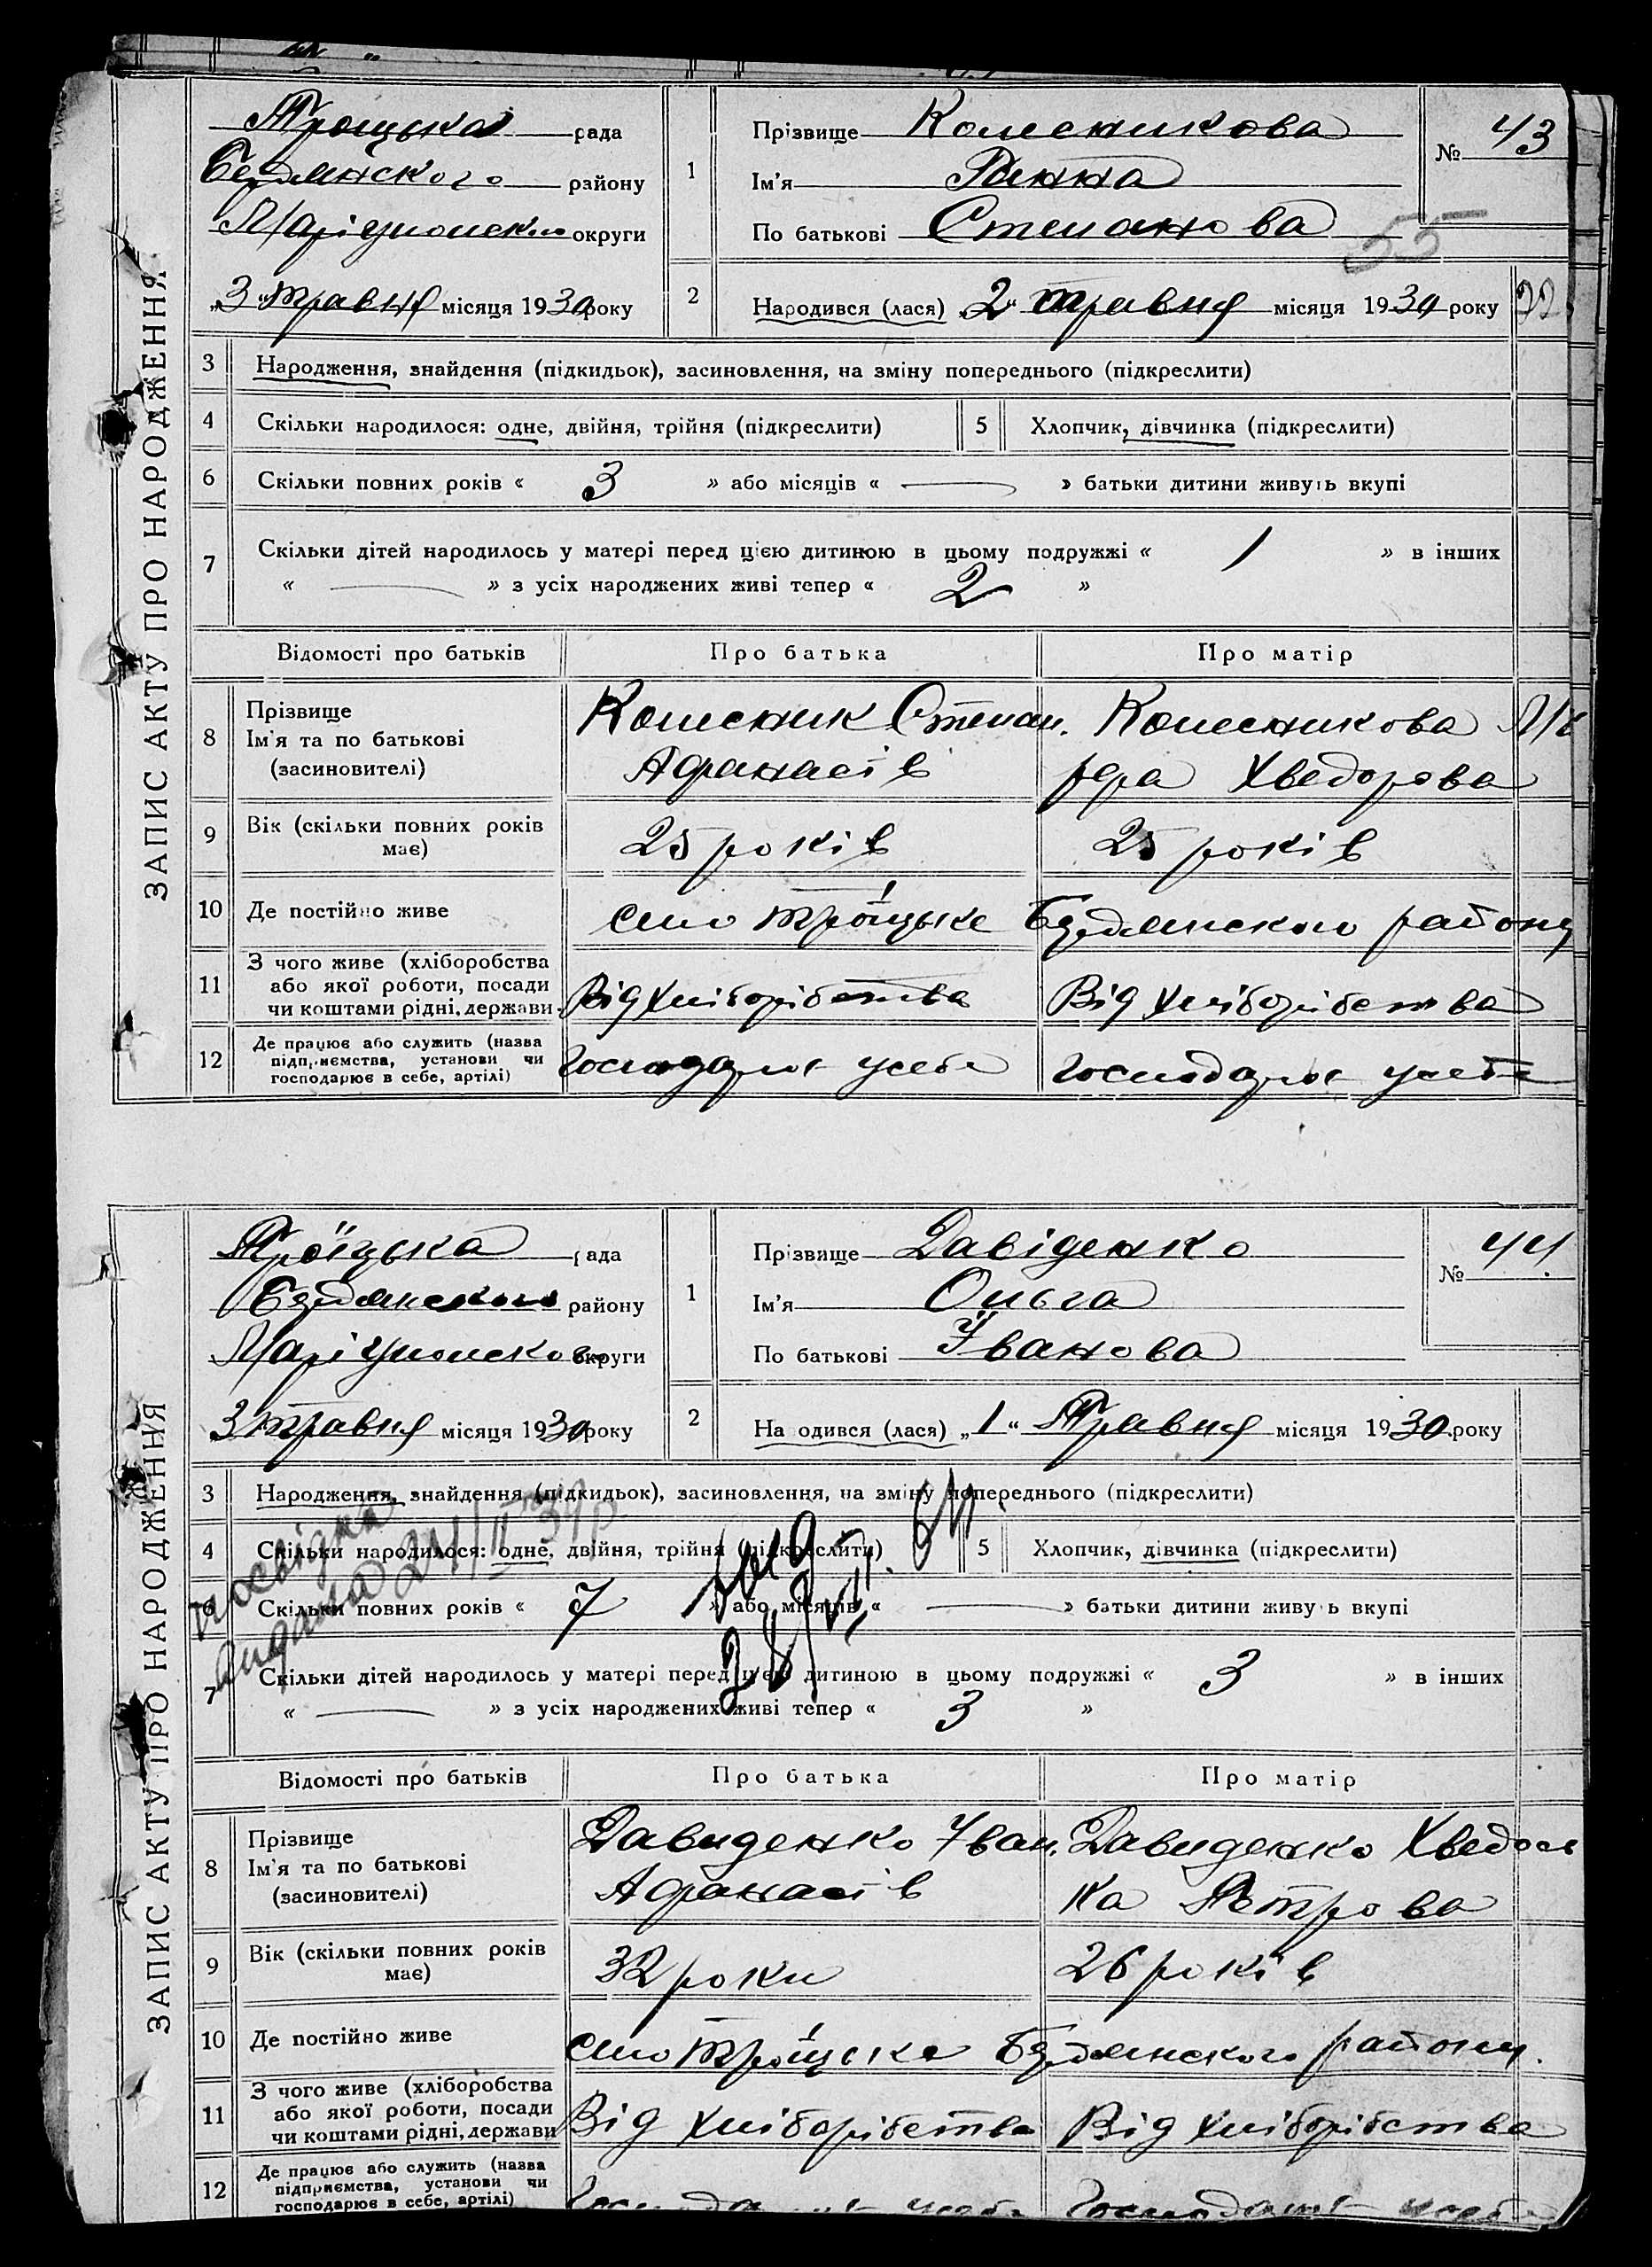 ЗАПИС АКТУ ПРО НАРОДЖЕННЯ
Троїцька рада
Бердянского району
Маріупольск округи
„3„ травня місяця 1930 року
1 Прізвище Колесникова
Ім'я
По батькові Степанова
№ 43
55
2 Народився (лася) „2„ травня місяця 1930 року
3 Народження, знайдення (підкидьок), засиновлення, на зміну попереднього (підкреслити)
4 Скільки народилося: одне, двійня, трійня (підкреслити) 5 Хлопчик, дівчинка (підкреслити)
6 Скільки повних років « 3 » або місяців « — » батьки дитини живуть вкупі
7 Скільки дітей народилось у матері перед цією дитиною в цьому подружжі « 1 » в інших
« — » з усіх народжених живі тепер « 2 »
Відомості про батьків Про батька Про матір
8 Прізвище
Ім'я та по батькові
(засиновителі)
Колесник Степан.
Афанасів
Колесникова
Хведорова
9 Вік (скільки повних років
має)
25 років 25 років
10 Де постійно живе село Троїцьке Бердянского району
11 З чого живе (хліборобства
або якої роботи, посади
чи коштами рідні, держави
Від хліборібства Від хліборібства
12 Де працює або служить (назва
підприємства, установи чи
господарює в себе, артілі)
Господарює усебе Господарює усебе
ЗАПИС АКТУ ПРО НАРОДЖЕННЯ
Троїцька рада
Бердянского району
Маріупольского округи
3 травня місяця 1930 року
1 Прізвище Давіденко
Ім'я Ольга
По батькові Іванова
№ 44
2 На одився (лася) „1„ Травня місяця 1930 року
3 Народження, знайдення (підкидьок), засиновлення, на зміну попереднього (підкреслити)
4 Скільки народилося: одне, двійня, трійня (підкреслити) 5 Хлопчик, дівчинка (підкреслити)
6 Скільки повних років « 7 » або місяців « — » батьки дитини живу ь вкупі
7 Скільки дітей народилось у матері перед цією дитиною в цьому подружжі « 3 » в інших
« — » з усіх народжених живі тепер « 3 »
посвідка
видана
Відомості про батьків Про батька Про матір
8 Прізвище
Ім'я та по батькові
(засиновителі)
Давиденко Іван.
Афанасів
Давиденко Хведось
ка Петрова
9 Вік (скільки повних років
має)
32 роки 26 років
10 Де постійно живе село Троїцьке Бердянского району.
11 З чого живе (хліборобства
або якої роботи, посади
чи коштами рідні, держави
Від хліборібства Від хліборібства
12 Де працює або служить (назва
підприємства, установи чи
господарює в себе, артілі)